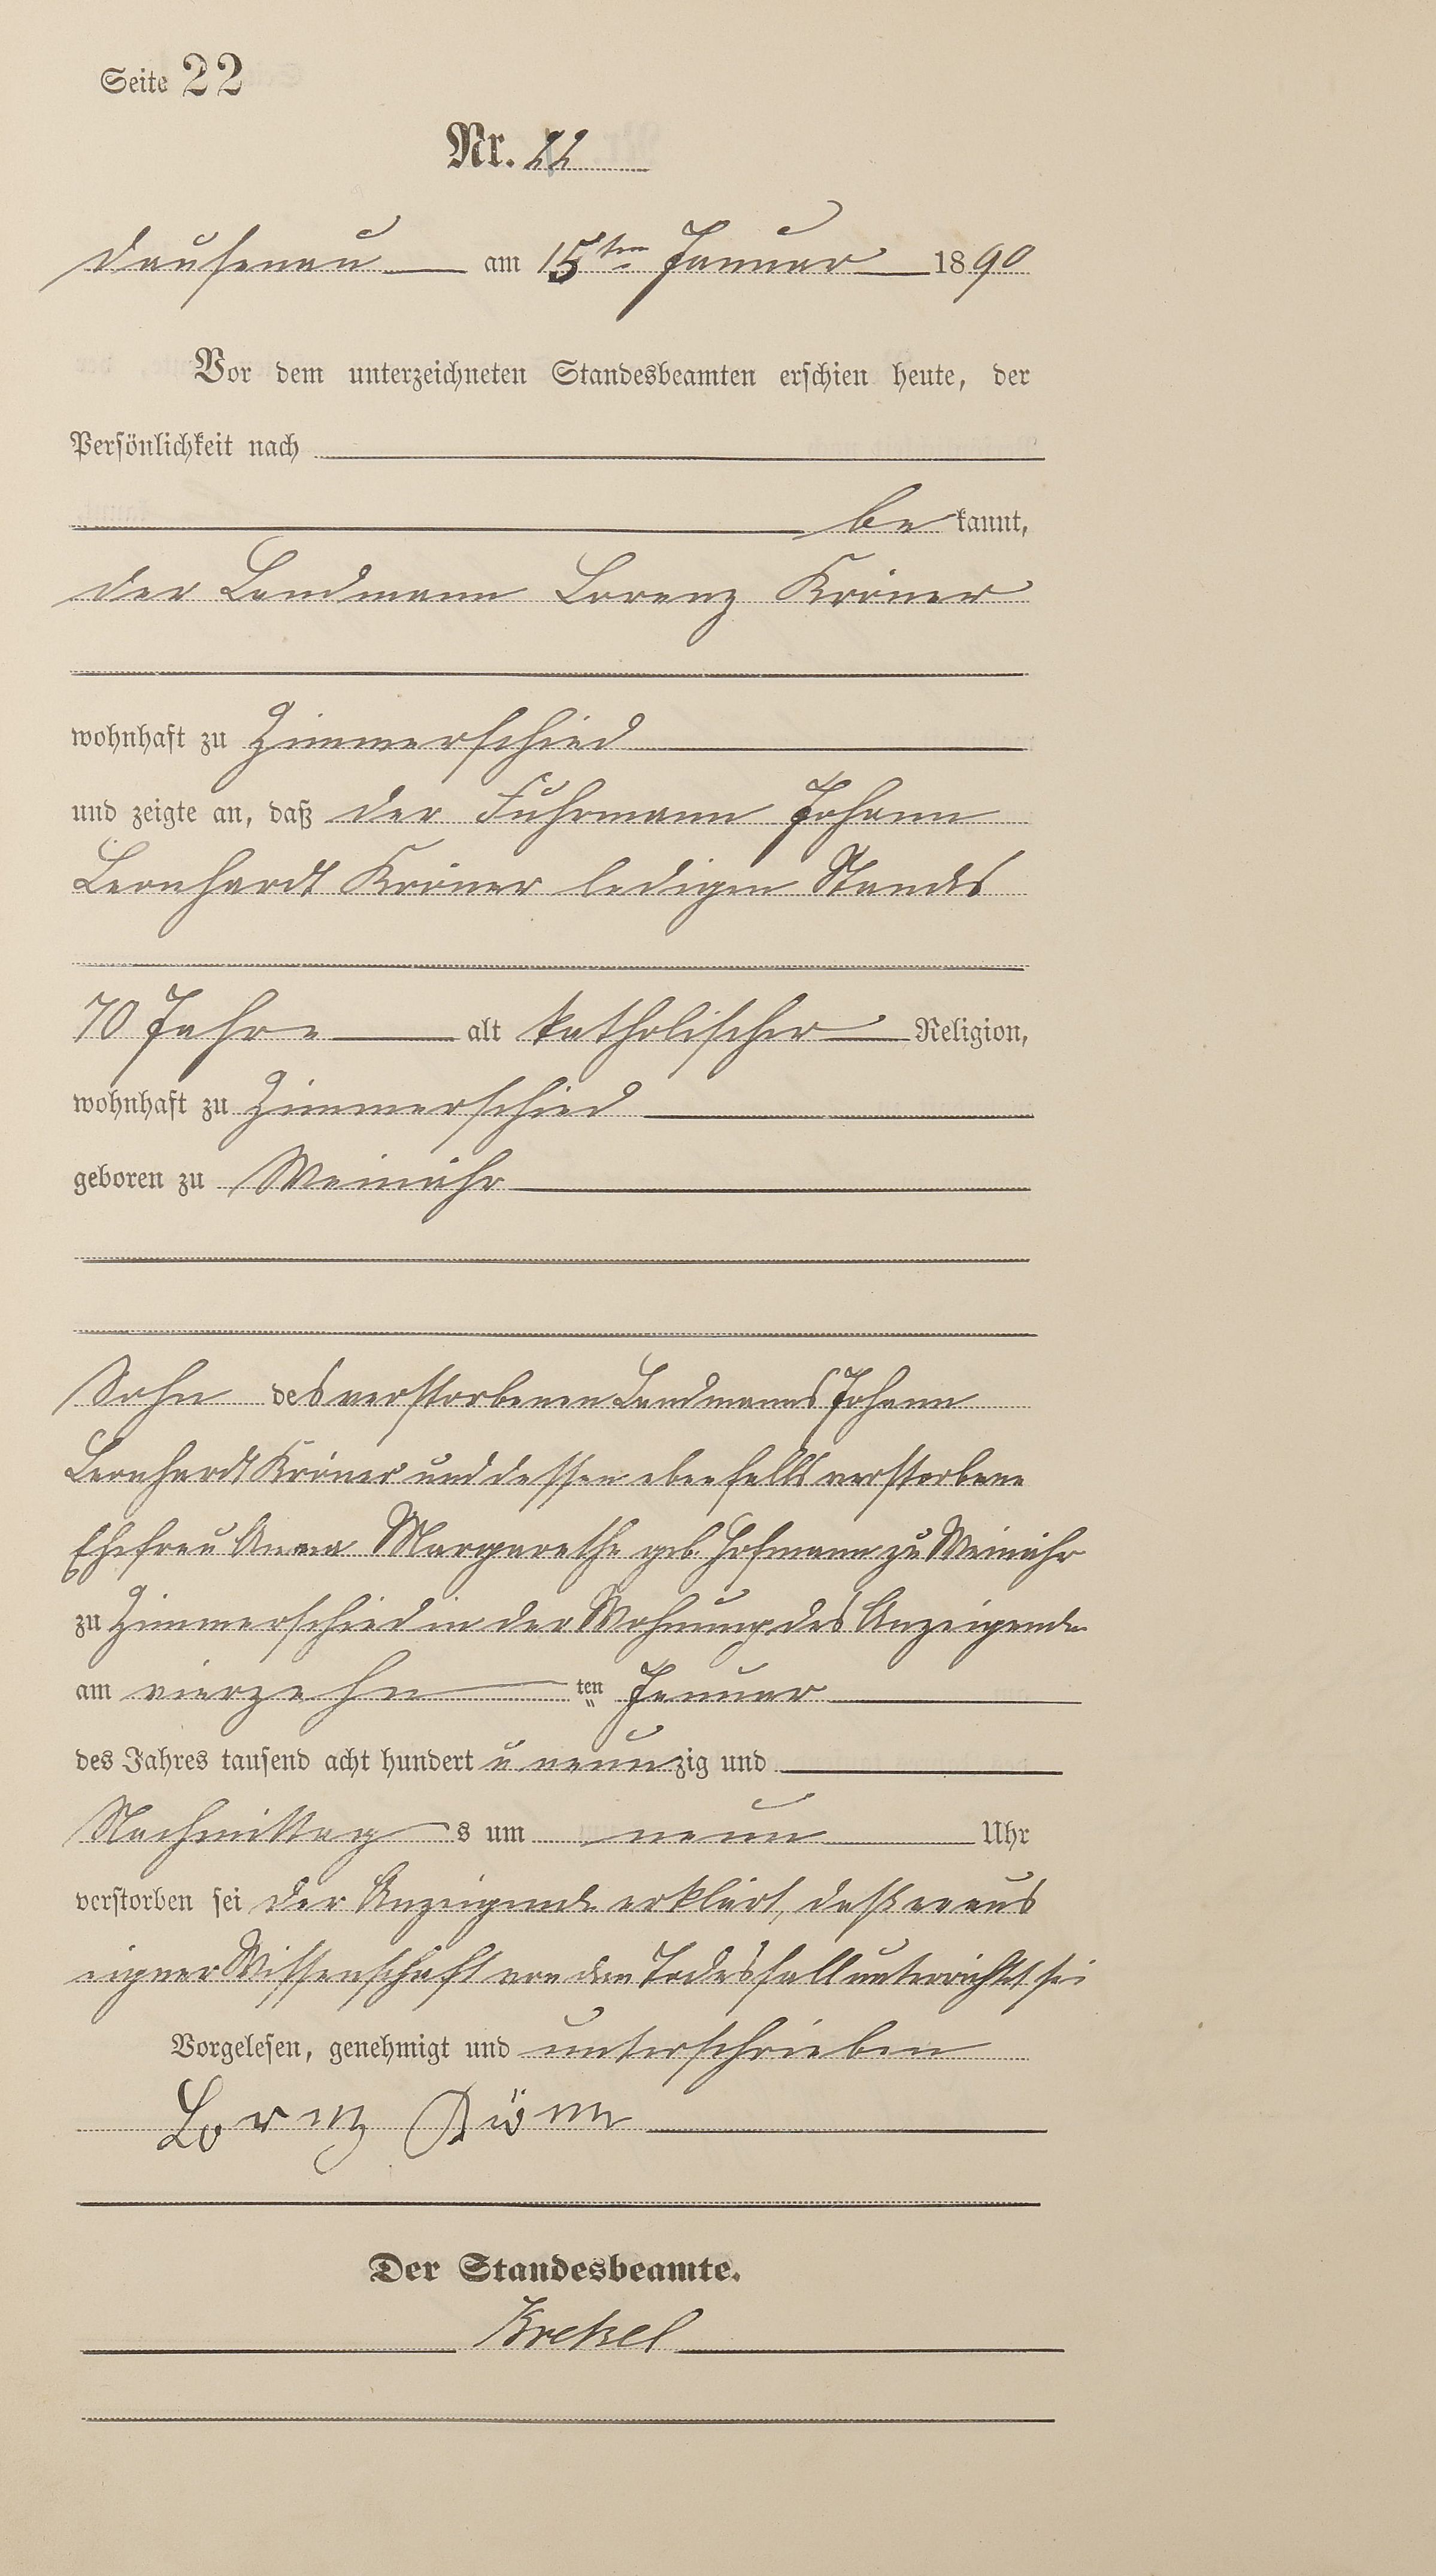 Seite 22
Nr. 22
Dausenau am 15ten Januar 1890
Vor dem unterzeichneten Standesbeamten erschien heute, der
Persönlichkeit nach
bekannt,
der Landmann Lorenz Kröner
wohnhaft zu Zimmerschied
und zeigte an, daß der Fuhrmann Johann
Leonhardt Kröner ledigen Stands
70 Jahre alt katholischer Religion,
wohnhaft zu Zimmerschied
geboren zu Weinähr
Sohn des verstorbenen Landmanns Johann
Leonhardt Kröner und dessen ebenfalls verstorbene
Ehefrau Anna Margarethe geb. Hofmann zu Weinähr
zu Zimmerschied in der Wohnung des Anzeigenden
am vierzehn ten Januar
des Jahres tausend acht hundert u neunzig und
Nachmittags um neun Uhr
verstorben sei der Anzeigende erklärt, daß er aus
eigner Wissenschaft von dem Todesfall unterrichtet sei
Vorgelesen, genehmigt und unterschrieben
Lorenz
Der Standesbeamte.
Krekel